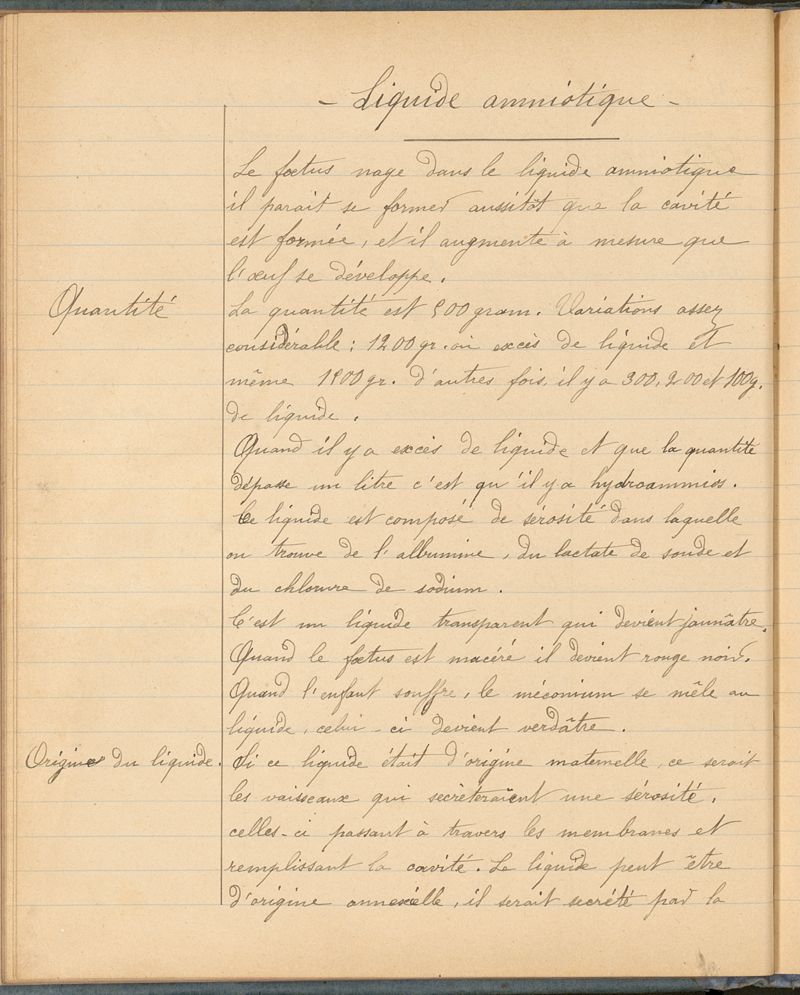 - Liquide amniotique -
Le fœtus nage dans le liquide amniotique
il parait se former aussitôt que la cavité
est formée, et il augmente à mesure que
l'œuf se développe.
Quantité
La quantité est 500 gram. Variations assez
considérable : 1200 gr. où excès de liquide et
même 1900 gr. d'autres fois il y a 300, 200 et 100g.
de liquide.
Quand il y a excès de liquide et que la quantité
dépasse un litre c'est qu'il y a hydroamnios.
Ce liquide est composé de sérosité dans laquelle
on trouve de l'albumine, du lactate de soude et
du chlorure de sodium.
C'est un liquide transparent qui devient jaunâtre.
Quand le fœtus est macéré il devient rouge noir.
Quand l'enfant souffre, le méconium se mêle au
liquide, celui-ci devient verdâtre.
Origine du liquide.
Si ce liquide était d'origine maternelle, ce serait
les vaisseaux qui secrèteraient une sérosité,
celles-ci passant à travers les membranes et
remplissant la cavité. Le liquide peut être
d'origine annexielle, il serait secrété par la